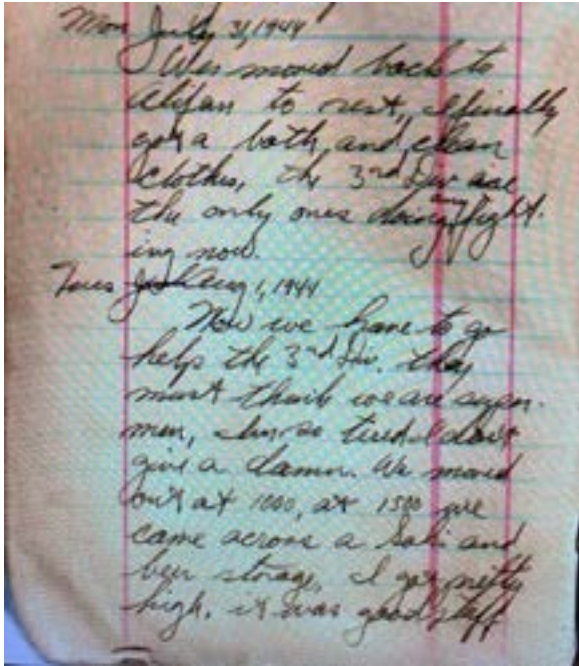 Mon July 31, 1944
Was moved back to
Alifan to rest, I finally
got a bath, and clean
clothes, the 3rd Div are
the only ones doing any fight-
ing now.
Tues Aug 1, 1944
Now we have to go
help the 3rd Div. they
must think we are super-
men, I'm so tired I don't
give a damn. We moved
out at 1000, at 1500 we
came across a Saki and
beer storage, I got pretty
high, it was good stuff